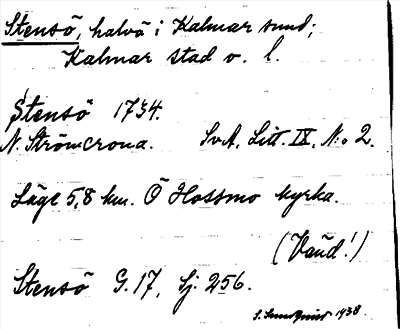 Stensö, halvö i Kalmar sund;
Kalmar stad o. l.
Stensö 1734.
N. Strömcrona. SvA, Litt. IX, No 2.
Läge 5,8 km. Ö Hossmo kyrka.
(Vaũd!)
Stensö G. 17, Sj: 256.
S. Sundquist 1938.